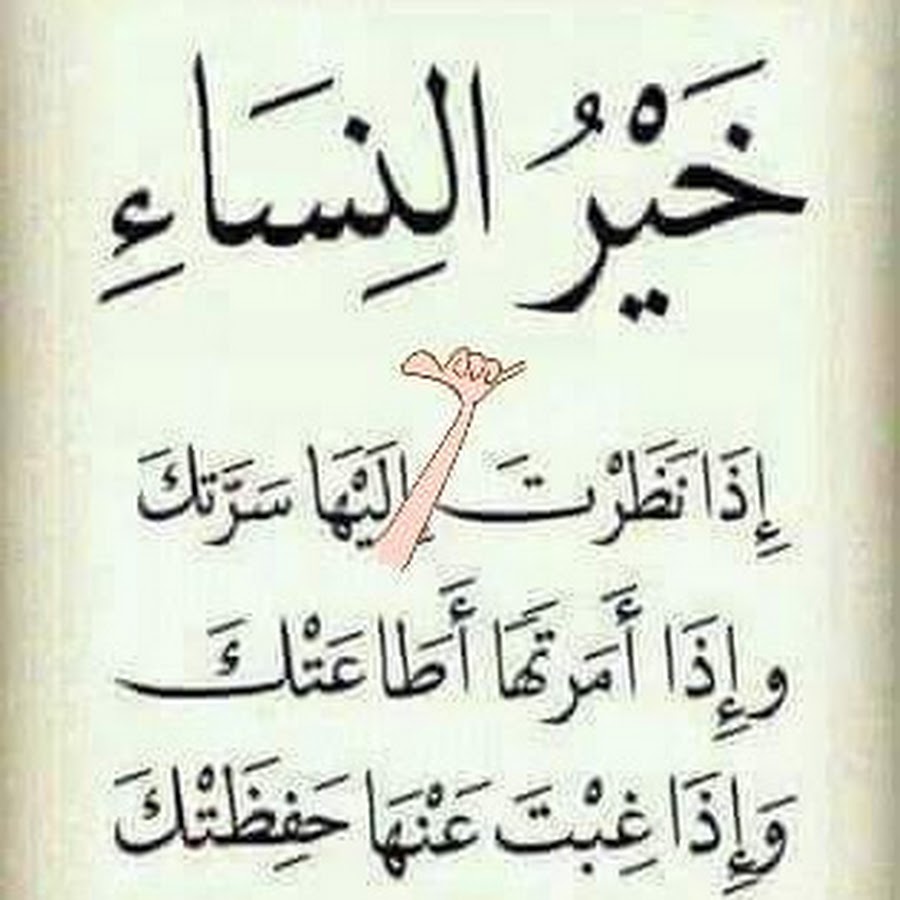 خَيْرُ النِسَاءِ
إِذَا نَظَرْتَ إِلَيْهَا سَرَّتكَ
وإِذَا أَمَرتَهَا أَطَاعَتْكَ
وَإِذَا غِبْتَ عَنْهَا حَفِظَتْكَ